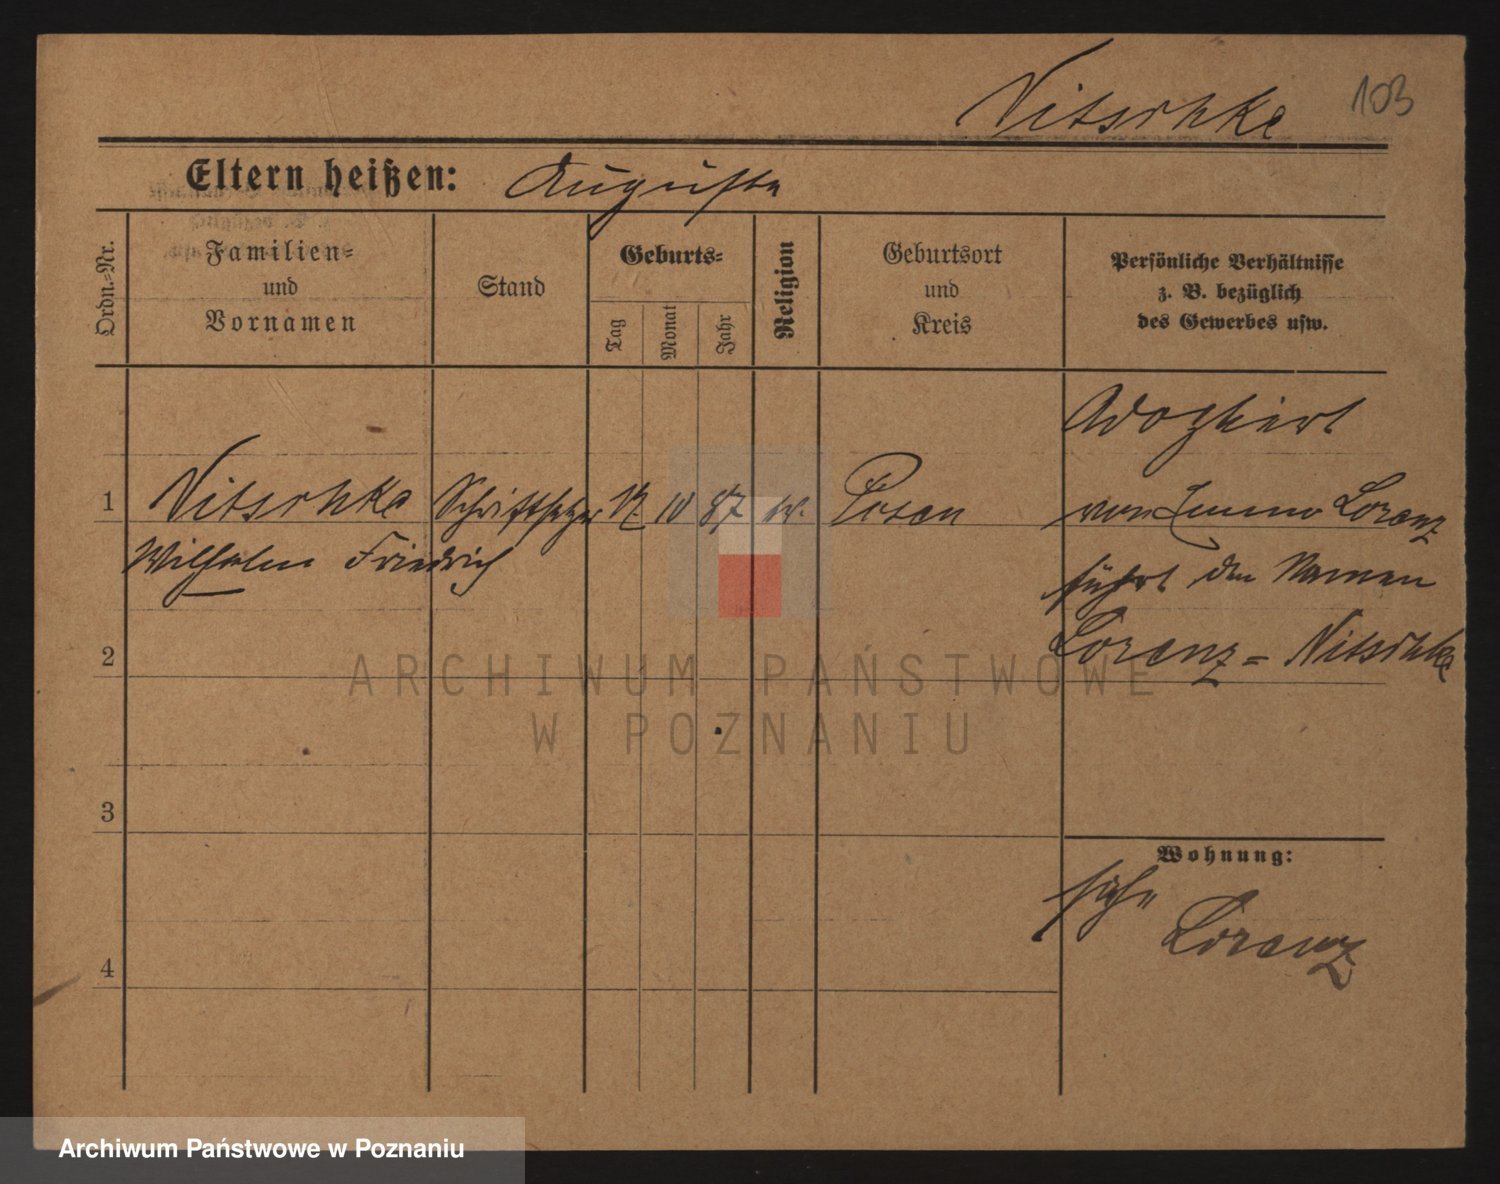 Nitschke
103
Eltern heißen: Auguste
Ordn.-Nr.
Familien-
und
Vornamen
Stand
Geburts-
Tag
Monat
Jahr
Religion
Geburtsort
und
Kreis
Persönliche Verhältnisse
z. B. bezüglich
des Gewerbes usw.
Adoptiert
1 Nitschke Schriftsetzer 10 87 Posen
von Lorenz
Wilhelm Friedrich
führt den Namen
2
Lorenz = Nitschke
3
Wohnung:
siehe
Lorenz
4
ARCHIWUM PAŃSTWOWE
W POZNANIU
Archiwum Państwowe w Poznaniu